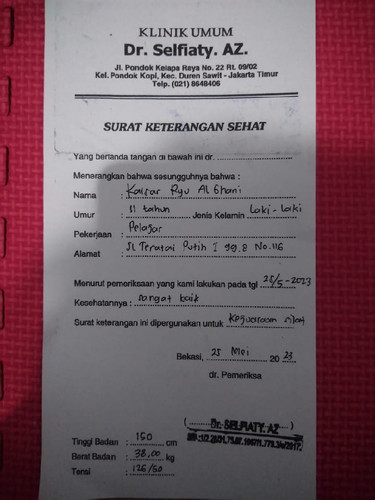 KLINIK UMUM
Dr. Selfiaty. AZ.
Jl. Pondok Kelapa Raya No. 22 Rt. 09/02
Kel. Pondok Kopi, Kec. Duren Sawit - Jakarta Timur
Telp. (021) 8648406
SURAT KETERANGAN SEHAT
Yang bertanda tangan di bawah ini dr.
Menerangkan bahwa sesungguhnya bahwa :
Nama : Kaisar Ryu Al Ghani
Umur : 11 tahun Jenis Kelamin Laki-Laki
Pekerjaan : Pelajar
Alamat : Jl Teratai Putih I 99.8 No.116
Menurut pemeriksaan yang kami lakukan pada tgl 25/5-2023
Kesehatannya : sangat baik
Surat keterangan ini dipergunakan untuk Kejuaraan silat
Bekasi, 25 Mei 2023
dr. Pemeriksa
( Dr. SELFIATY. AZ )
Tinggi Badan : 150 cm
Berat Badan : 38,00 kg
Tensi : 126/80